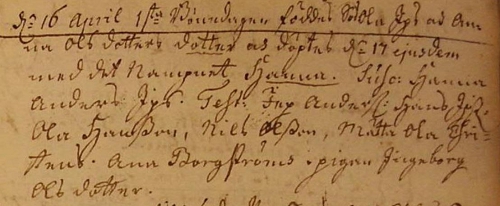 D: 16 April 1sta Bönedagen föddes Ola Jps as An-
na Ols dotters dotter as döptes D: 17 ejusdem
med det Nampnet Hanna. Susc: Hanna
Anders Jps. Test: Jep Anders: Hans Jps:
Ola Hansson, Nils Olsson, Matta Ola Chri-
stens. Ana Borgströms pigan Ingeborg
Ols dotter.